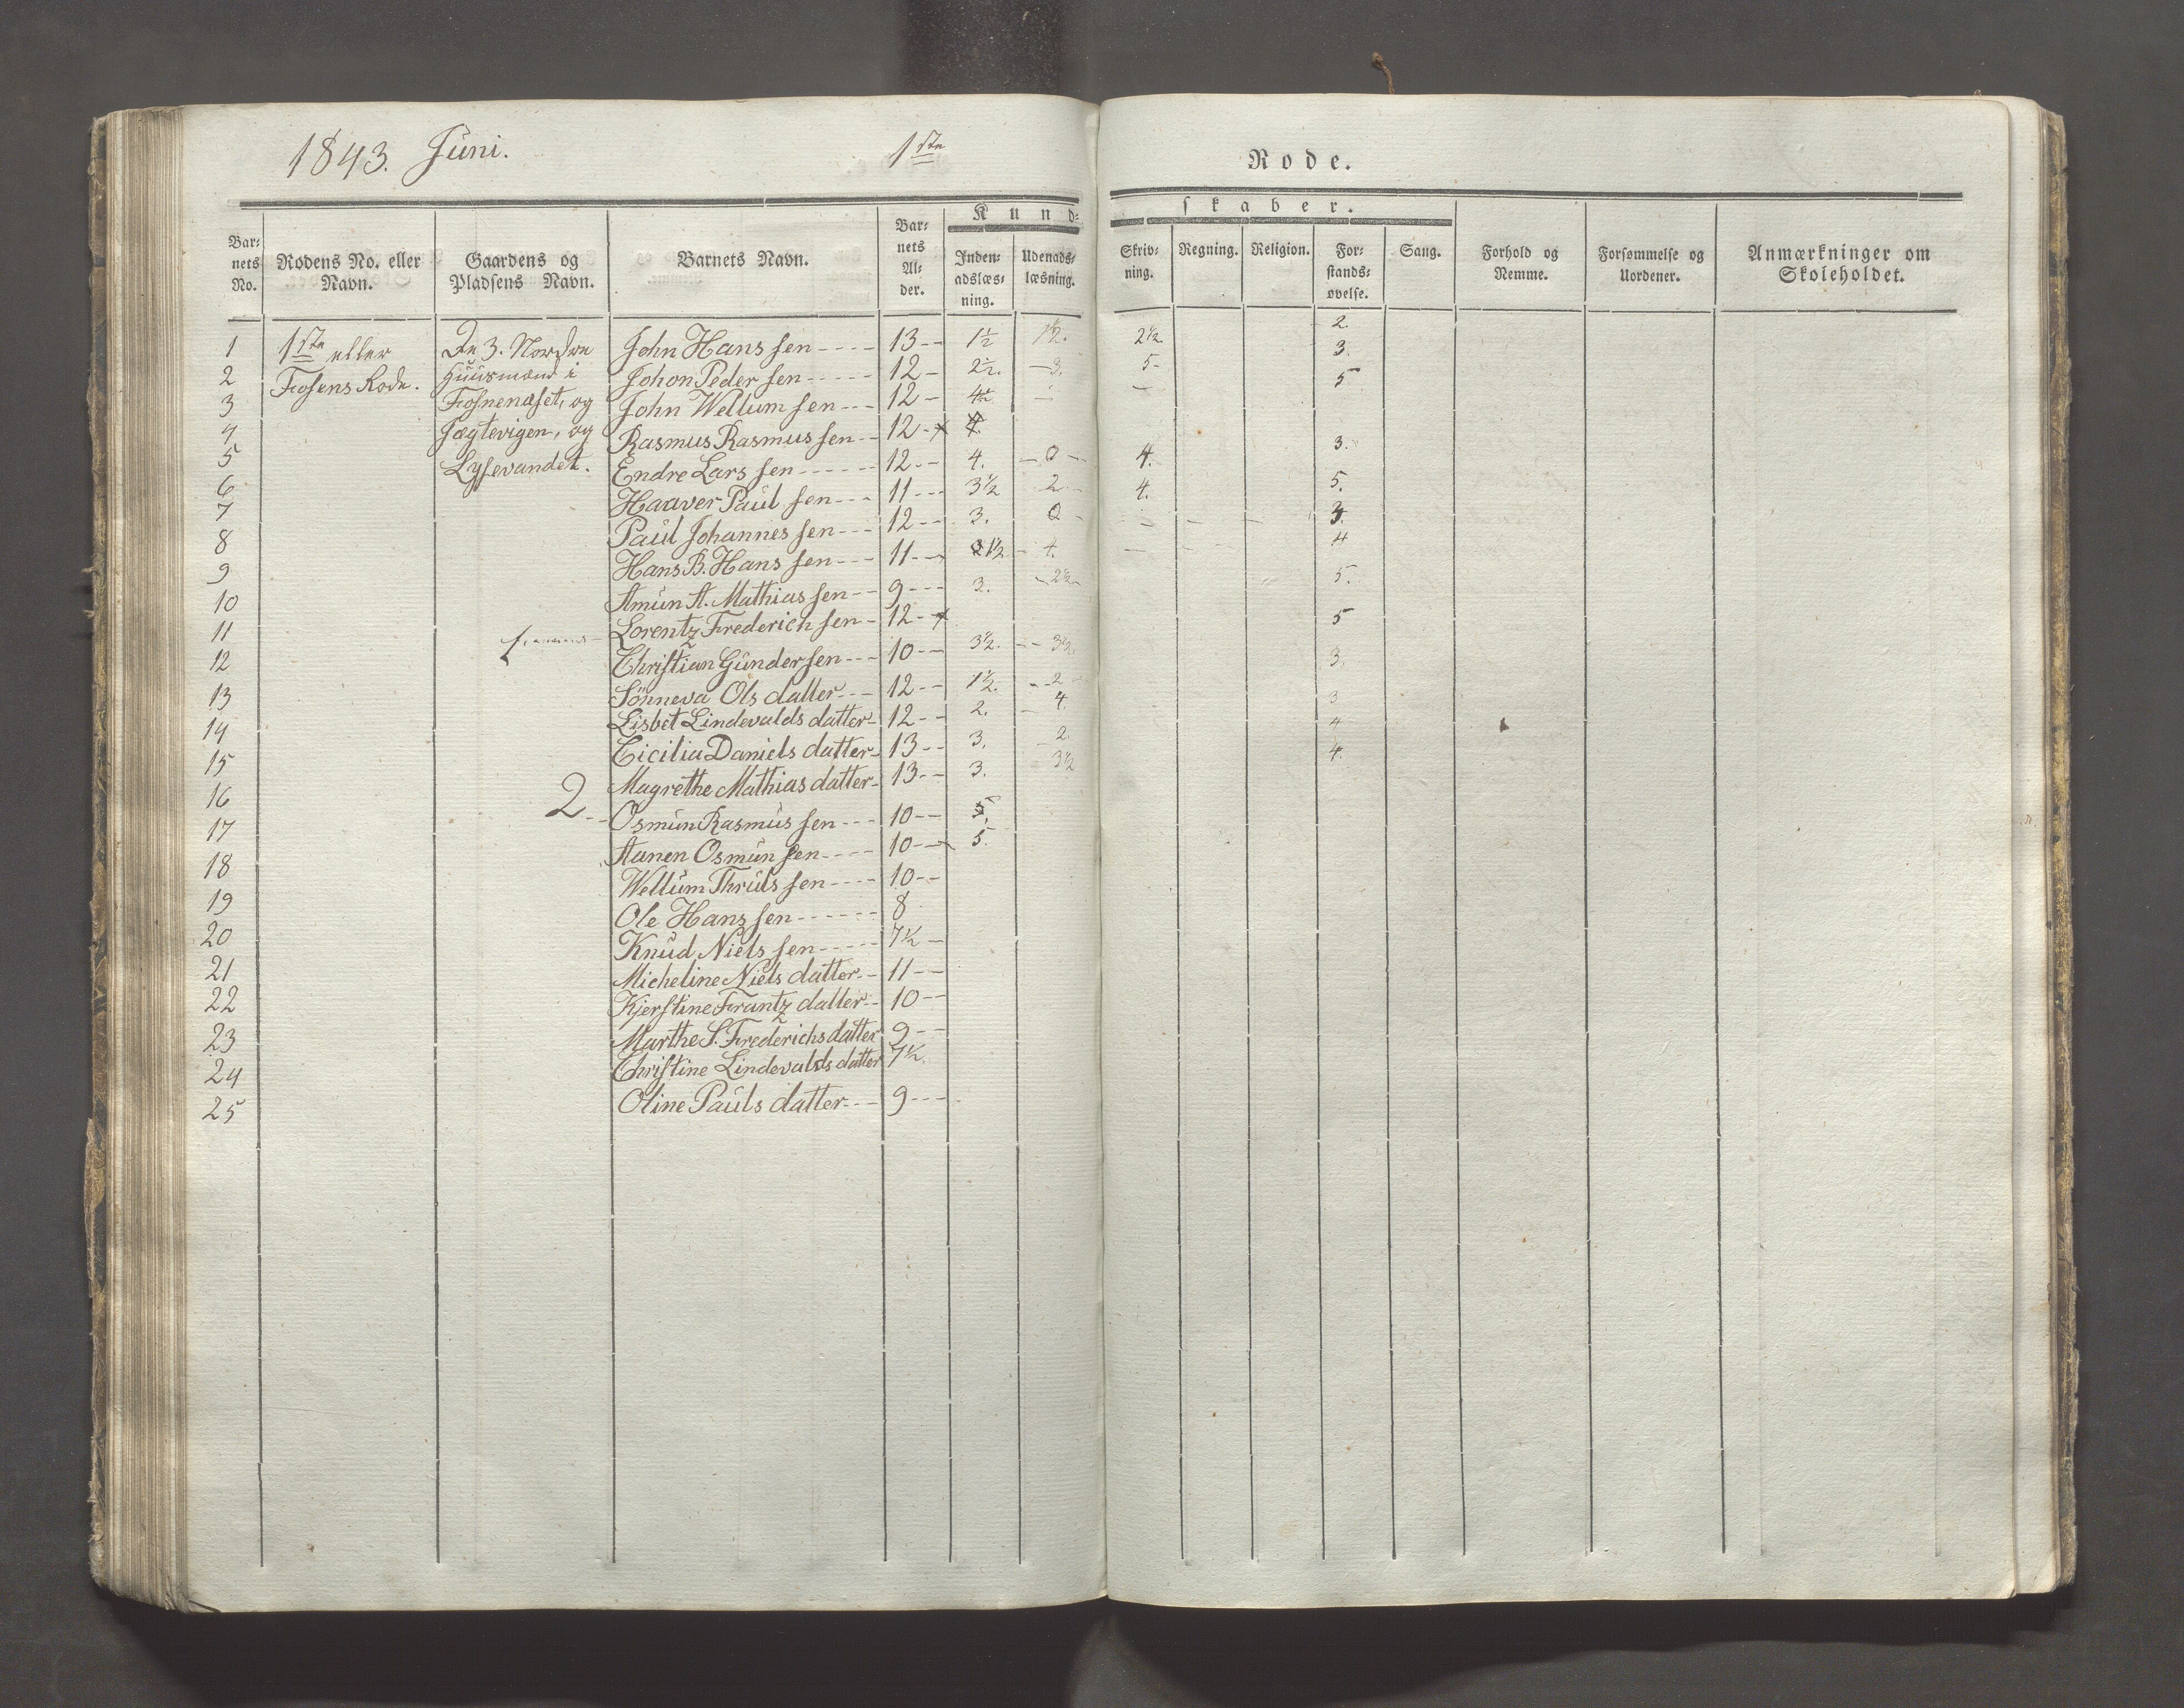 1843. Juni. 1ste Rode.
Kundskaber.
Barnets No. Rodens No. eller Navn. Gaardens og Pladsens Navn. Barnets Navn. Barnets Alder. Indenadslæsning. Udenadslæsning. Skrivning. Regning. Religion. Forstandsøvelse. Sang. Forhold og Nemme. Forsømmelse og Uordener. Anmærkninger om Skoleholdet.
1 1ste eller De 3. Nordre John Hans sen - - - - 13 - - 1½ 1½. 2½ 2.
2 Fosens Rode. Huusmænd i Johon Peder sen - - - - - 12 - 2½. - 3. 5 - 3.
3 Fosnenæset, og John Wellum sen - - - 12 - 4½ - - 5
4 Jægtevigen, og Rasmus Rasmus sen - - 12 - 4.
5 Lysevandet. Endre Lars sen - - - - - - 12 - - 4. - 0 - 4. 3.
6 Haaver Paul sen - - - 11 - - - 3½ 2 4. 5.
7 Paul Johannes sen - - - 12 - - 3. 0 - - - - 3.
8 Hans B. Hans sen - - - 11 - - 1½ - 4. - - - 4
9 Amun A. Mathias sen - - 9 - - - 3. - 2½ - 5.
10 Lorentz Frederich sen - 12 - 5
11 Christian Gunder sen - - - 10 - - 3½. - - 3½. 3.
12 Sönneva Ols datter - - - 12 - - 1½. - - 2 3
13 Lisbet Lindevalds datter - 12 - - 2. - 4. 4
14 Cicilia Daniels datter - 13 - - 3. - 2. 4.
15 Magrethe Mathias datter - 13 - - 3. 3½
16 2 - - Osmun Rasmus sen - - - 10 - - 5.
17 Aanen Osmun sen - - - - 10 - - 5.
18 Wellum Thruls sen - - - - 10 - -
19 Ole Hans sen - - - - - - 8
20 Knud Niels sen - - - - - 7½ -
21 Micheline Niels datter - - 11 - -
22 Kjerstine Frantz datter - - 10 - -
23 Marthe S. Frederichs datter 9 - -
24 Christine Lindevalds datter 7½.
25 Oline Pauls datter - - - 9 - - -